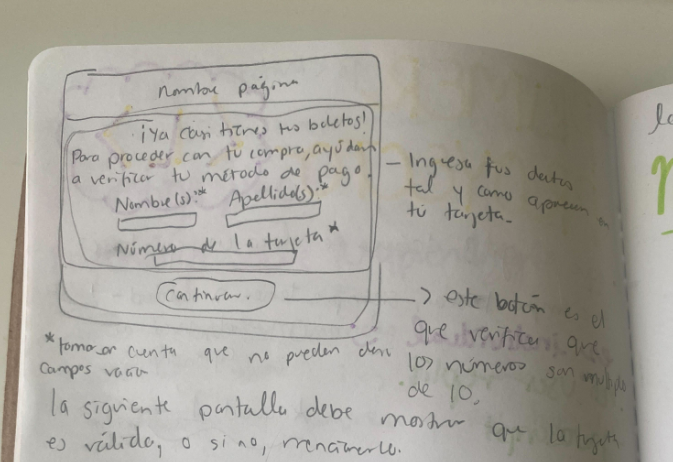 nombre página
¡Ya casi tienes tus boletos!
Para proceder con tu compra, ayúdam
a verificar tu método de pago.
Nombre(s):*
Apellido(s):*
Número de la tarjeta*
Continuar.
- Ingresa tus datos
tal y como aparecen en
tu tarjeta.
este botón es el
que verifica que
los números son multiplo
de 10.
*tomar en cuenta que no pueden
campos
la siguiente pantalla debe mostrar que la tarjeta
es válida, o si no,